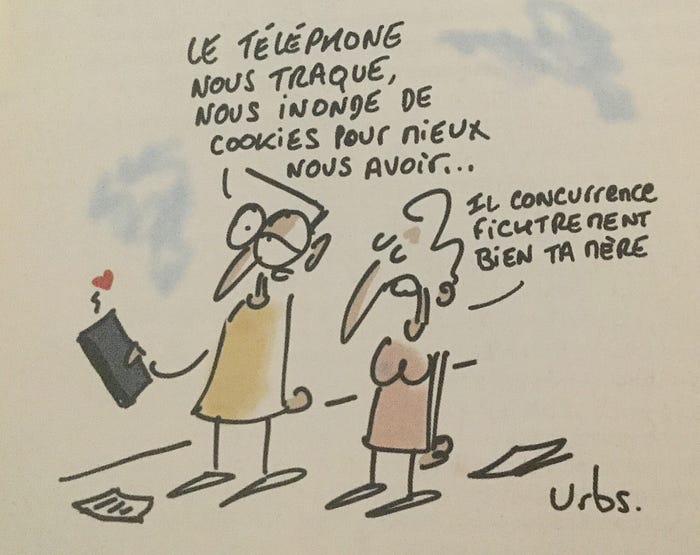 LE TÉLÉPHONE
NOUS TRAQUE,
NOUS INONDE DE
COOKIES POUR MIEUX
NOUS AVOIR...
IL CONCURRENCE
FICHTREMENT
BIEN TA MÈRE
urbs.